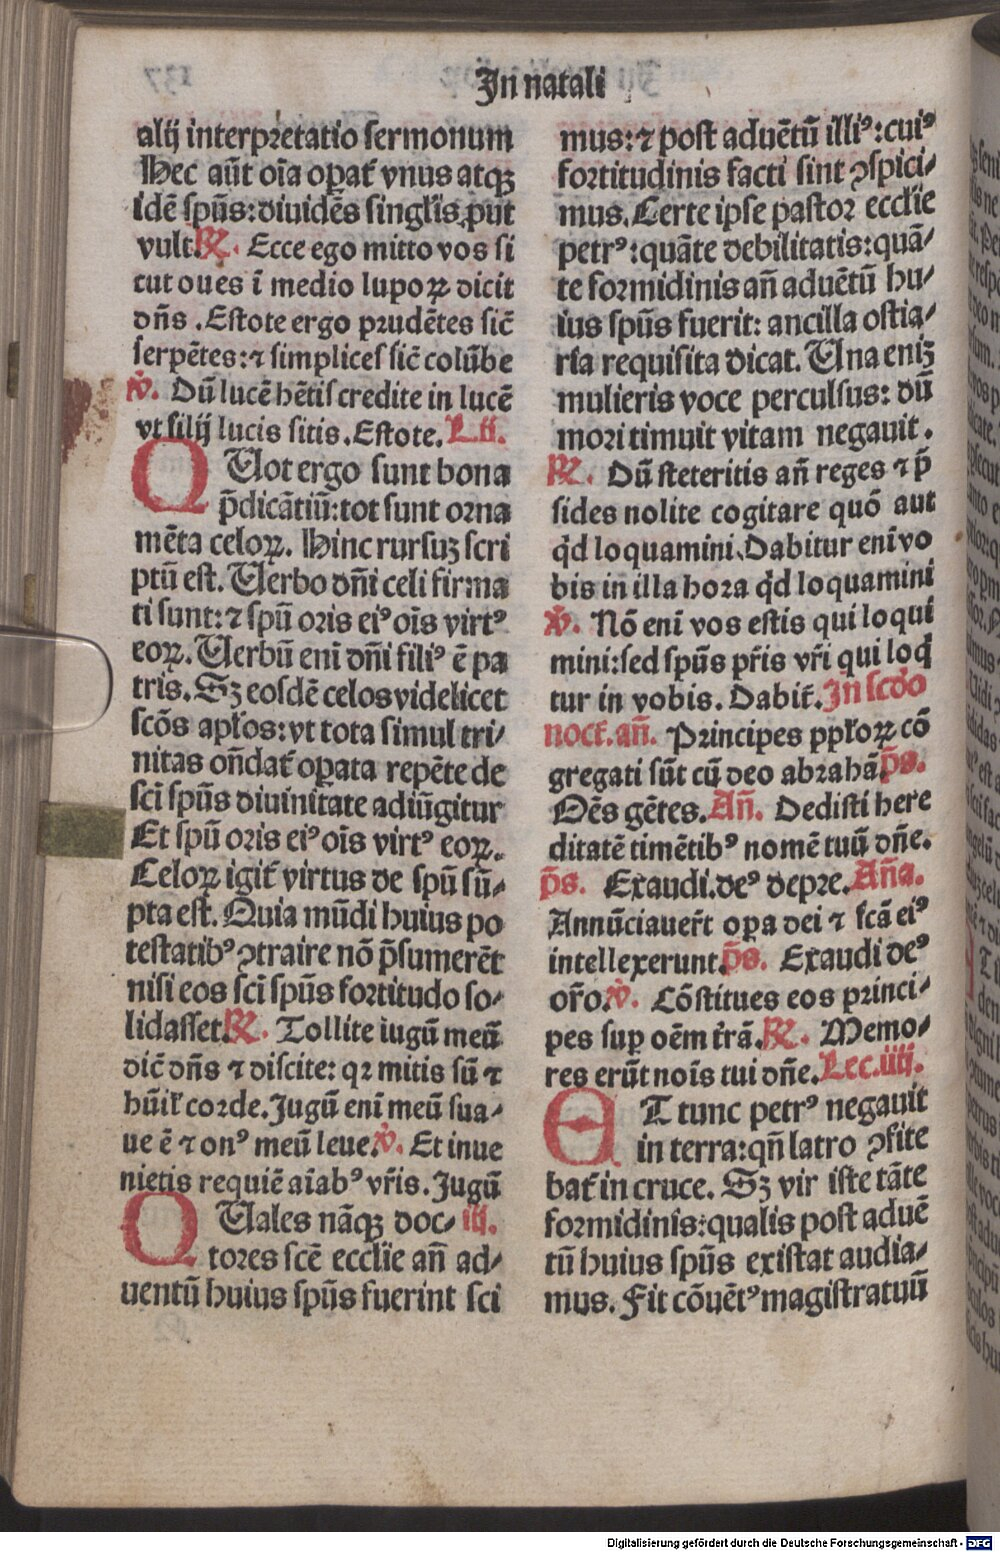 In natali
alij interpretatio sermonum
Hec aūt oīa oꝑat᷑ vnus atqꝫ
idē spūs: diuidēs singlīs ꝓut
vult. ℟. Ecce ego mitto vos si
cut oues ī medio lupoꝝ dicit
dn̄s. Estote ergo prudētes sic̄
serpētes: ⁊ simplices sic̄ colūbe
℣. Dū lucē hētis credite in lucē
vt filij lucis sitis. Estote. L. ii.
QUot ergo sunt bona
p̄dicātiū: tot sunt orna
mēta celoꝝ. Hinc rursuꝫ scri
ptū est. Uerbo dn̄i celi firma
ti sunt: ⁊ spū oris eiꝰ oīs virtꝰ
eoꝝ. Uerbū enī dn̄i filiꝰ ē pa
tris. Sꝫ eosdē celos videlicet
scōs apłos: vt tota simul tri-
nitas on̄dat᷑ oꝑata repēte de
scī spūs diuinitate adiūgitur
Et spū oris eiꝰ oīs virtꝰ eoꝝ.
Celoꝝ igit᷑ virtus de spū sū-
pta est. Quia mūdi huius po
testatibꝰ ꝯtraire nō p̄sumerēt
nisi eos scī spūs fortitudo so-
lidasset. ℟. Tollite iugū meū
dic̄ dn̄s ⁊ discite: qꝛ mitis sū ⁊
hūił corde. Jugū enī meū sua-
ue ē ⁊ onꝰ meū leue. ℣. Et inue
nietis requiē aīabꝰ vr̄is. Jugū
QUales nāqꝫ doc- iij.
tores scē ecclīe an̄ ad-
uentū huius spūs fuerint sci
mus: ⁊ post aduētū illiꝰ: cuiꝰ
fortitudinis facti sint ꝯspici-
mus. Certe ipse pastor ecclīe
petrꝰ: quāte debilitatis: quā-
te formidinis an̄ aduētū hu-
ius spūs fuerit: ancilla ostia-
ria requisita dicat. Una eniꝫ
mulieris voce perculsus: dū
mori timuit vitam negauit.
℟. Dū steteritis an̄ reges ⁊ p̄
sides nolite cogitare quō aut
qd̄ loquamini. Dabitur enī vo
bis in illa hora qd̄ loquamini
℣. Nō enī vos estis qui loqui
mini: sed spūs pr̄is vr̄i qui loq̄
tur in vobis. Dabit᷑. In scdo
noct᷑. an̄. Principes ppłoꝝ cō
gregati sūt cū deo abrahā. p̄s.
Oēs gētes. An̄. Dedisti here
ditatē timētibꝰ nomē tuū dn̄e.
p̄s. Exaudi. deꝰ depre. An̄a.
Annūciauer̄t oꝑa dei ⁊ fcā eiꝰ
intellexerunt. p̄s. Exaudi deꝰ
or̄o. ℣. Cōstitues eos princi-
pes suꝑ oēm tr̄ā. ℟. Memo-
res erūt noīs tui dn̄e. Lec. iiij.
ET tunc petrꝰ negauit
in terra: qn̄ latro ꝯfite
bat᷑ in cruce. Sꝫ vir iste tāte
formidinis: qualis post aduē
tū huius spūs existat audia-
mus. Fit cōuētꝰ magistratuū
Digitalisierung gefördert durch die Deutsche Forschungsgemeinschaft - DFG